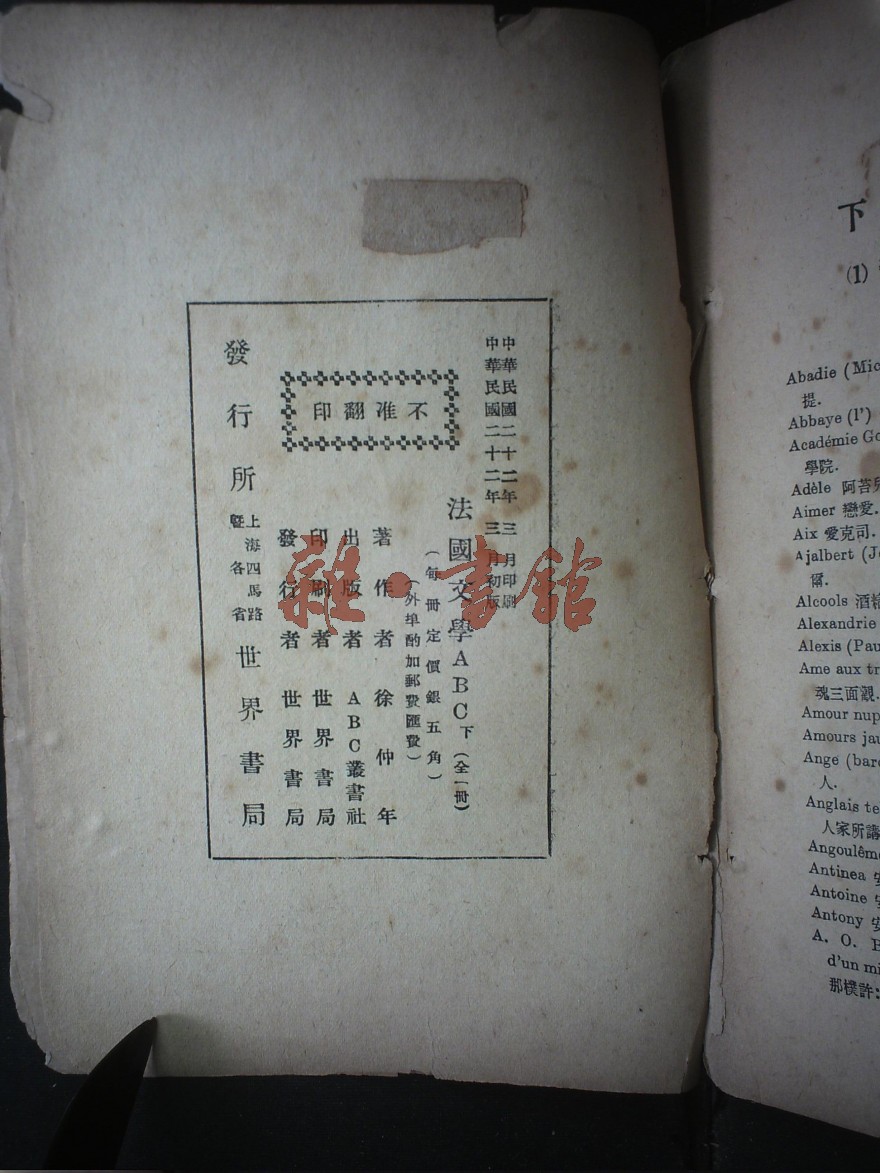 中華民國二十二年三月印刷
中華民國二十二年三月初版
法國文學ABC下（全一冊）
（每冊定價銀五角）
（外埠酌加郵費匯費）
不准翻印
著作者 徐仲年
出版者 ABC叢書社
印刷者 世界書局
發行者 世界書局
發行所 上海四馬路
暨各省 世界書局
雜·書館
下
(1)
Abadie (Mic
提.
Abbaye (l')
Académie Go
學院.
Adèle 阿苔
Aimer 戀愛.
Aix 愛克司.
Ajalbert (J
爾.
Alcools 酒精
Alexandrie
Alexis (Pau
Ame aux tr
魂三面觀.
Amour nup
Amours jau
Ange (baro
人.
Anglais te
人家所講
Angoulême
Antinea 安
Antoine 安
Antony 安
A. O. B
d'un mi
那樸許: